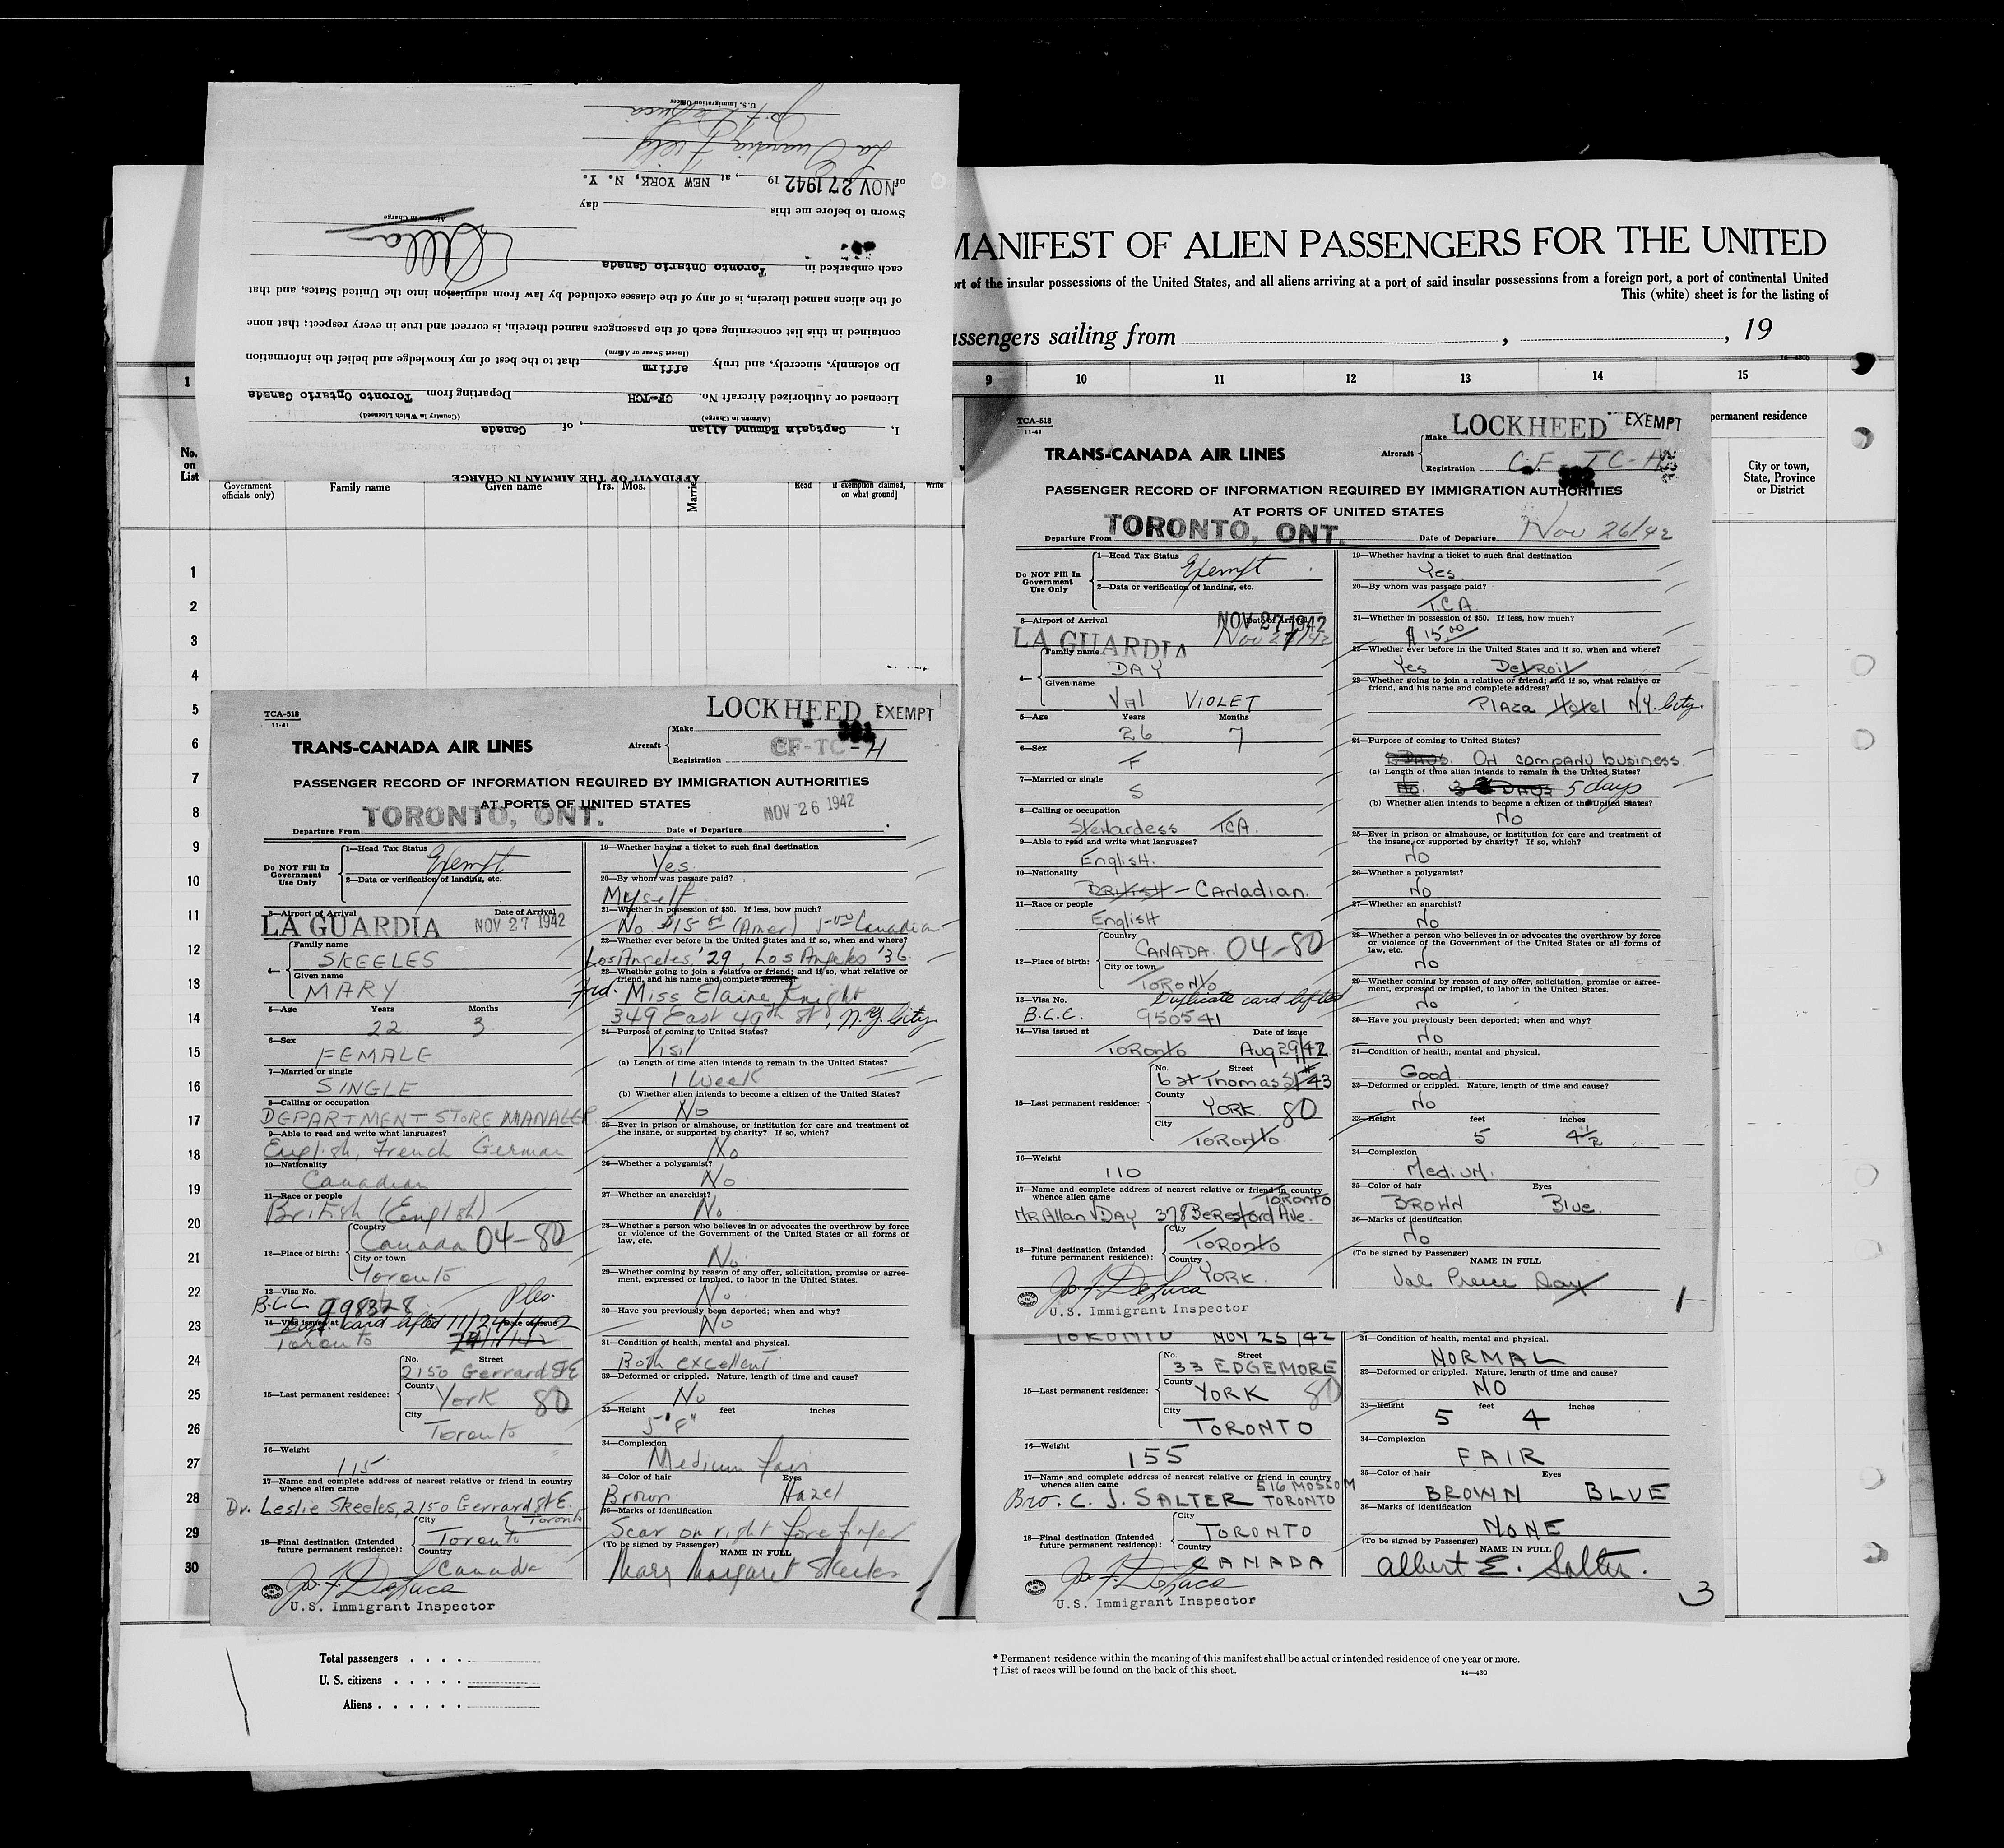 AFFIDAVIT OF THE AIRMAN IN CHARGE
I, Captgain Edmund Allan, of Canada
(Airman in Charge) (Country in Which Licensed)
Licensed or Authorized Aircraft No. CF-TCH Departing from Toronto Ontario Canada
Do solemnly, sincerely, and truly affirm that to the best of my knowledge and belief the information
(Insert Swear or Affirm)
contained in this list concerning each of the passengers named therein, is correct and true in every respect; that none
of the aliens named therein, is of any of the classes excluded by law from admission into the United States, and that
each embarked in Toronto Ontario Canada
Airman in Charge
Sworn to before me this day
of NOV 27 1942 19 , at NEW YORK, N. Y.
La Guardia Field
U.S. Immigration Officer
MANIFEST OF ALIEN PASSENGERS FOR THE UNITED
rt of the insular possessions of the United States, and all aliens arriving at a port of said insular possessions from a foreign port, a port of continental United
This (white) sheet is for the listing of
assengers sailing from , , 19
1 9 10 11 12 13 14 15
permanent residence
No. on List
Government officials only)
Family name
Given name
Yrs. Mos.
Read
if exemption claimed, on what ground]
Write
City or town, State, Province or District
1
2
3
4
5
6
7
8
9
10
11
12
13
14
15
16
17
18
19
20
21
22
23
24
25
26
27
28
29
30
TCA-518
11-41
LOCKHEED EXEMPT
Make
TRANS-CANADA AIR LINES
Aircraft
CF-TC-H
Registration
PASSENGER RECORD OF INFORMATION REQUIRED BY IMMIGRATION AUTHORITIES
AT PORTS OF UNITED STATES
Departure From TORONTO, ONT. Date of Departure NOV 26 1942
Do NOT Fill In Government Use Only
1—Head Tax Status Exempt
2—Data or verification of landing, etc.
3—Airport of Arrival LA GUARDIA Date of Arrival NOV 27 1942
4— Family name SKEELES
Given name MARY
5—Age Years 22 Months 3
6—Sex FEMALE
7—Married or single SINGLE
8—Calling or occupation DEPARTMENT STORE MANAGER
9—Able to read and write what languages? English, French German
10—Nationality Canadian
11—Race or people British (English)
12—Place of birth: Country Canada 04-80
City or town Toronto
13—Visa No. B.C.C. 998328
14—Visa issued at Toronto Date of issue
card lifted 11/24/42
15—Last permanent residence: No. Street 2150 Gerrard St E
County York 80
City Toronto
16—Weight 115
17—Name and complete address of nearest relative or friend in country whence alien came
Dr. Leslie Skeeles, 2150 Gerrard St E. Toronto
18—Final destination (Intended future permanent residence): City Toronto
Country Canada
U.S. Immigrant Inspector
19—Whether having a ticket to such final destination
Yes
20—By whom was passage paid?
Myself
21—Whether in possession of $50. If less, how much?
No $15.00 (Amer) 5.00 Canadian
22—Whether ever before in the United States and if so, when and where?
Los Angeles '29, Los Angeles '36
23—Whether going to join a relative or friend; and if so, what relative or friend, and his name and complete address?
Frd. Miss Elaine Knight
349 East 49th St, N.Y. City
24—Purpose of coming to United States?
Visit
(a) Length of time alien intends to remain in the United States?
1 Week
(b) Whether alien intends to become a citizen of the United States?
No
25—Ever in prison or almshouse, or institution for care and treatment of the insane, or supported by charity? If so, which?
No
26—Whether a polygamist?
No
27—Whether an anarchist?
No
28—Whether a person who believes in or advocates the overthrow by force or violence of the Government of the United States or all forms of law, etc.
No
29—Whether coming by reason of any offer, solicitation, promise or agreement, expressed or implied, to labor in the United States.
No
30—Have you previously been deported; when and why?
No
31—Condition of health, mental and physical.
Both excellent
32—Deformed or crippled. Nature, length of time and cause?
No
33—Height feet inches
5'8"
34—Complexion
Medium fair
35—Color of hair Brown Eyes Hazel
36—Marks of identification
Scar on right fore finger
(To be signed by Passenger) NAME IN FULL
Mary Margaret Skeeles
TCA-518
11-41
LOCKHEED EXEMPT
Make
TRANS-CANADA AIR LINES
Aircraft
Registration CF-TC-H
PASSENGER RECORD OF INFORMATION REQUIRED BY IMMIGRATION AUTHORITIES
AT PORTS OF UNITED STATES
Departure From TORONTO, ONT. Date of Departure Nov 26/42
Do NOT Fill In Government Use Only
1—Head Tax Status Exempt
2—Data or verification of landing, etc.
3—Airport of Arrival LA GUARDIA Date of Arrival NOV 27 1942
Nov 27/42
4— Family name DAY
Given name Val VIOLET
5—Age Years 26 Months 7
6—Sex F
7—Married or single S
8—Calling or occupation Stewardess TCA.
9—Able to read and write what languages? English.
10—Nationality British - Canadian.
11—Race or people English
12—Place of birth: Country CANADA. 04-80
City or town Toronto
13—Visa No. Duplicate card lifted
B.C.C. 950541
14—Visa issued at Toronto Date of issue Aug 29/42
15—Last permanent residence: No. Street 6 St Thomas St #43
County YORK. 80
City Toronto
16—Weight 110
17—Name and complete address of nearest relative or friend in country whence alien came
Mr Allan V DAY 378 Beresford Ave. Toronto
18—Final destination (Intended future permanent residence): City Toronto
Country YORK.
U.S. Immigrant Inspector
19—Whether having a ticket to such final destination
Yes
20—By whom was passage paid?
T.C.A.
21—Whether in possession of $50. If less, how much?
$15.00
22—Whether ever before in the United States and if so, when and where?
Yes Detroit
23—Whether going to join a relative or friend; and if so, what relative or friend, and his name and complete address?
Plaza Hotel N.Y. City.
24—Purpose of coming to United States?
On company business.
(a) Length of time alien intends to remain in the United States?
5 days
(b) Whether alien intends to become a citizen of the United States?
No
25—Ever in prison or almshouse, or institution for care and treatment of the insane, or supported by charity? If so, which?
No
26—Whether a polygamist?
No
27—Whether an anarchist?
No
28—Whether a person who believes in or advocates the overthrow by force or violence of the Government of the United States or all forms of law, etc.
No
29—Whether coming by reason of any offer, solicitation, promise or agreement, expressed or implied, to labor in the United States.
No
30—Have you previously been deported; when and why?
No
31—Condition of health, mental and physical.
Good
32—Deformed or crippled. Nature, length of time and cause?
No
33—Height 5 feet 4½ inches
34—Complexion
Medium.
35—Color of hair BROWN Eyes Blue.
36—Marks of identification
No
(To be signed by Passenger) NAME IN FULL
Day
1
TORONTO NOV 25/42
15—Last permanent residence: No. Street 33 EDGEMORE
County YORK 80
City TORONTO
16—Weight 155
17—Name and complete address of nearest relative or friend in country whence alien came
Bro. C. J. SALTER 516 MOSSOM TORONTO
18—Final destination (Intended future permanent residence): City TORONTO
Country CANADA
U.S. Immigrant Inspector
31—Condition of health, mental and physical.
NORMAL
32—Deformed or crippled. Nature, length of time and cause?
NO
33—Height 5 feet 4 inches
34—Complexion
FAIR
35—Color of hair BROWN Eyes BLUE
36—Marks of identification
NONE
(To be signed by Passenger) NAME IN FULL
Albert E. Salter.
3
Total passengers
U.S. citizens
Aliens
* Permanent residence within the meaning of this manifest shall be actual or intended residence of one year or more.
† List of races will be found on the back of this sheet.
14—430